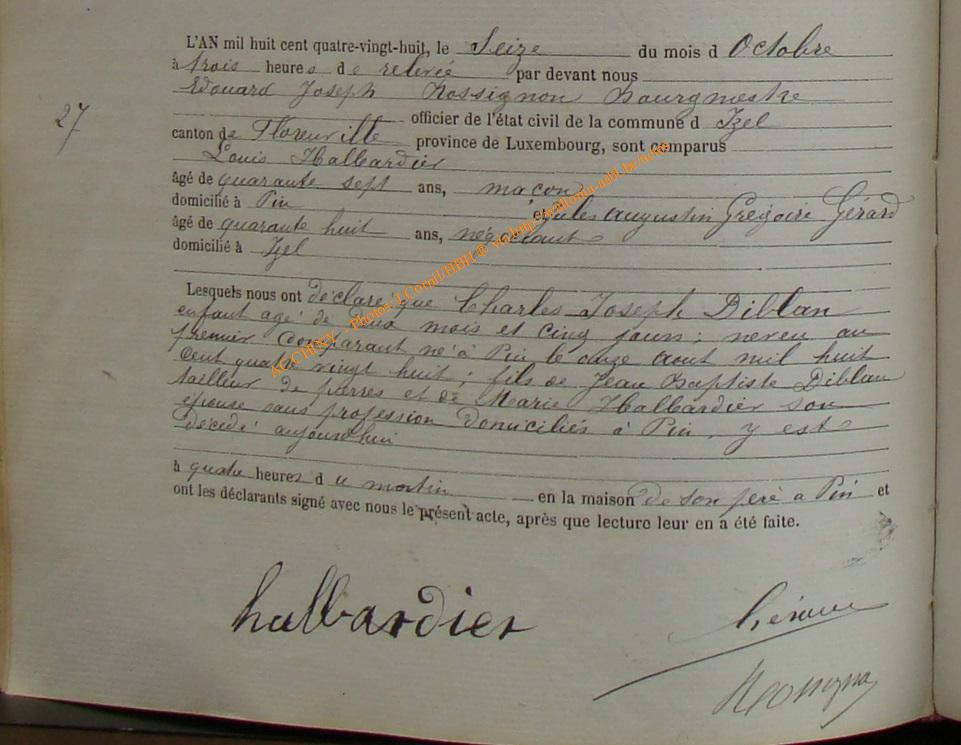 L'AN mil huit cent quatre-vingt-huit, le Seize du mois d Octobre
à trois heures de relevée par devant nous
Edouard Joseph Rossignon Bourgmestre
27
officier de l'état civil de la commune d Izel
canton de Florenville province de Luxembourg, sont comparus
Louis Halbardier
âgé de quarante sept ans, maçon
domicilié à Pin et Jules Augustin Grégoire Gérard
âgé de quarante huit ans, négociant
domicilié à Izel
Lesquels nous ont déclaré que Charles Joseph Diblan
enfant agé de deux mois et cinq jours ; neveu au
premier comparant né à Pin le onze aout mil huit
cent quatre vingt huit ; fils de Jean Baptiste Diblan
tailleur de pierres et de Marie Halbardier son
épouse sans profession domiciliés à Pin, y est
décédé aujourd'hui
à quatre heures d u matin en la maison de son père a Pin et
ont les déclarants signé avec nous le présent acte, après que lecture leur en a été faite.
halbardier